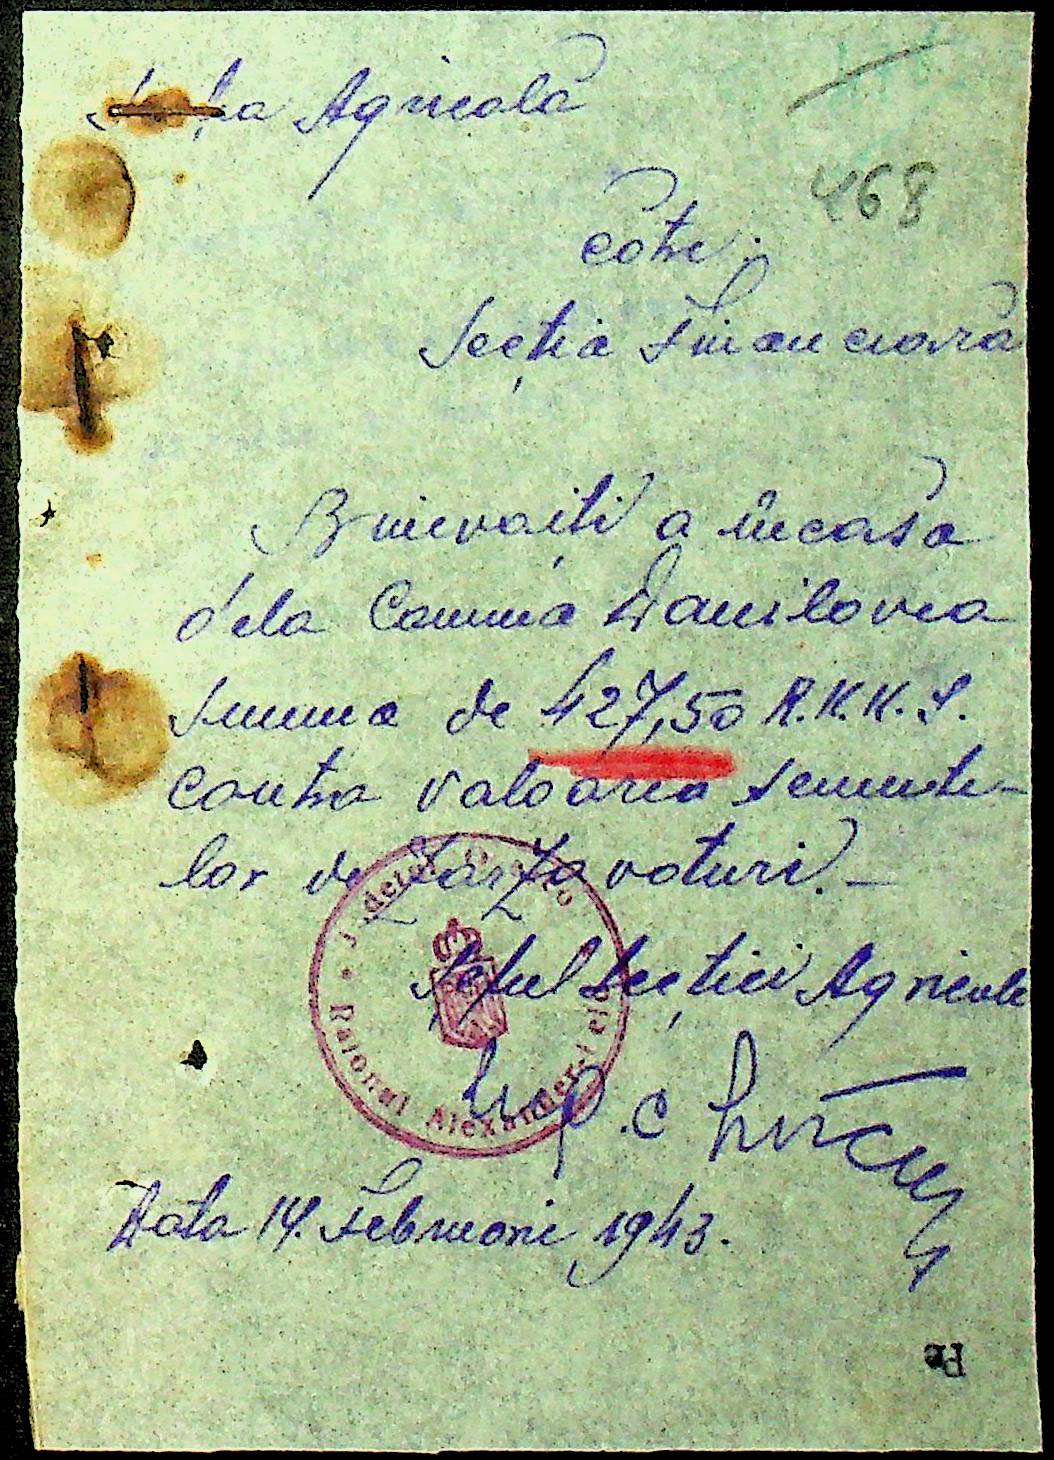 Secția Agricolă
468
Către
Secția Financiară
Binevoiți a încasa
dela Comuna Danilovca
suma de 427,50 R.K.K.S.
contra valoarea semințe-
lor de zarzavaturi.—
Șeful Secției Agricole
Județul
Raionul Alexander-Feld
Data 14. Februarie 1943.
Pe